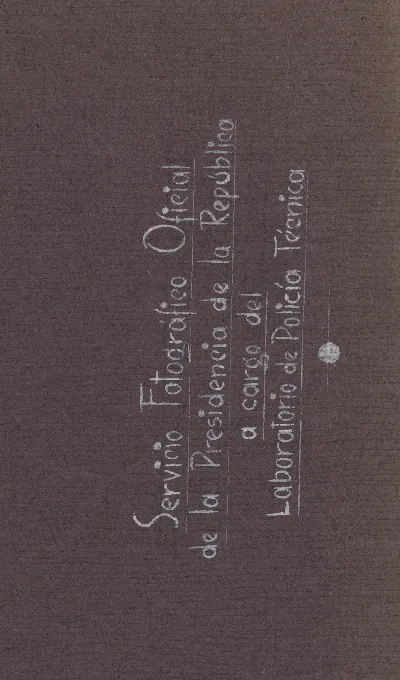 Servicio Fotográfico Oficial
de la Presidencia de la República
a cargo del
Laboratorio de Policía Técnica